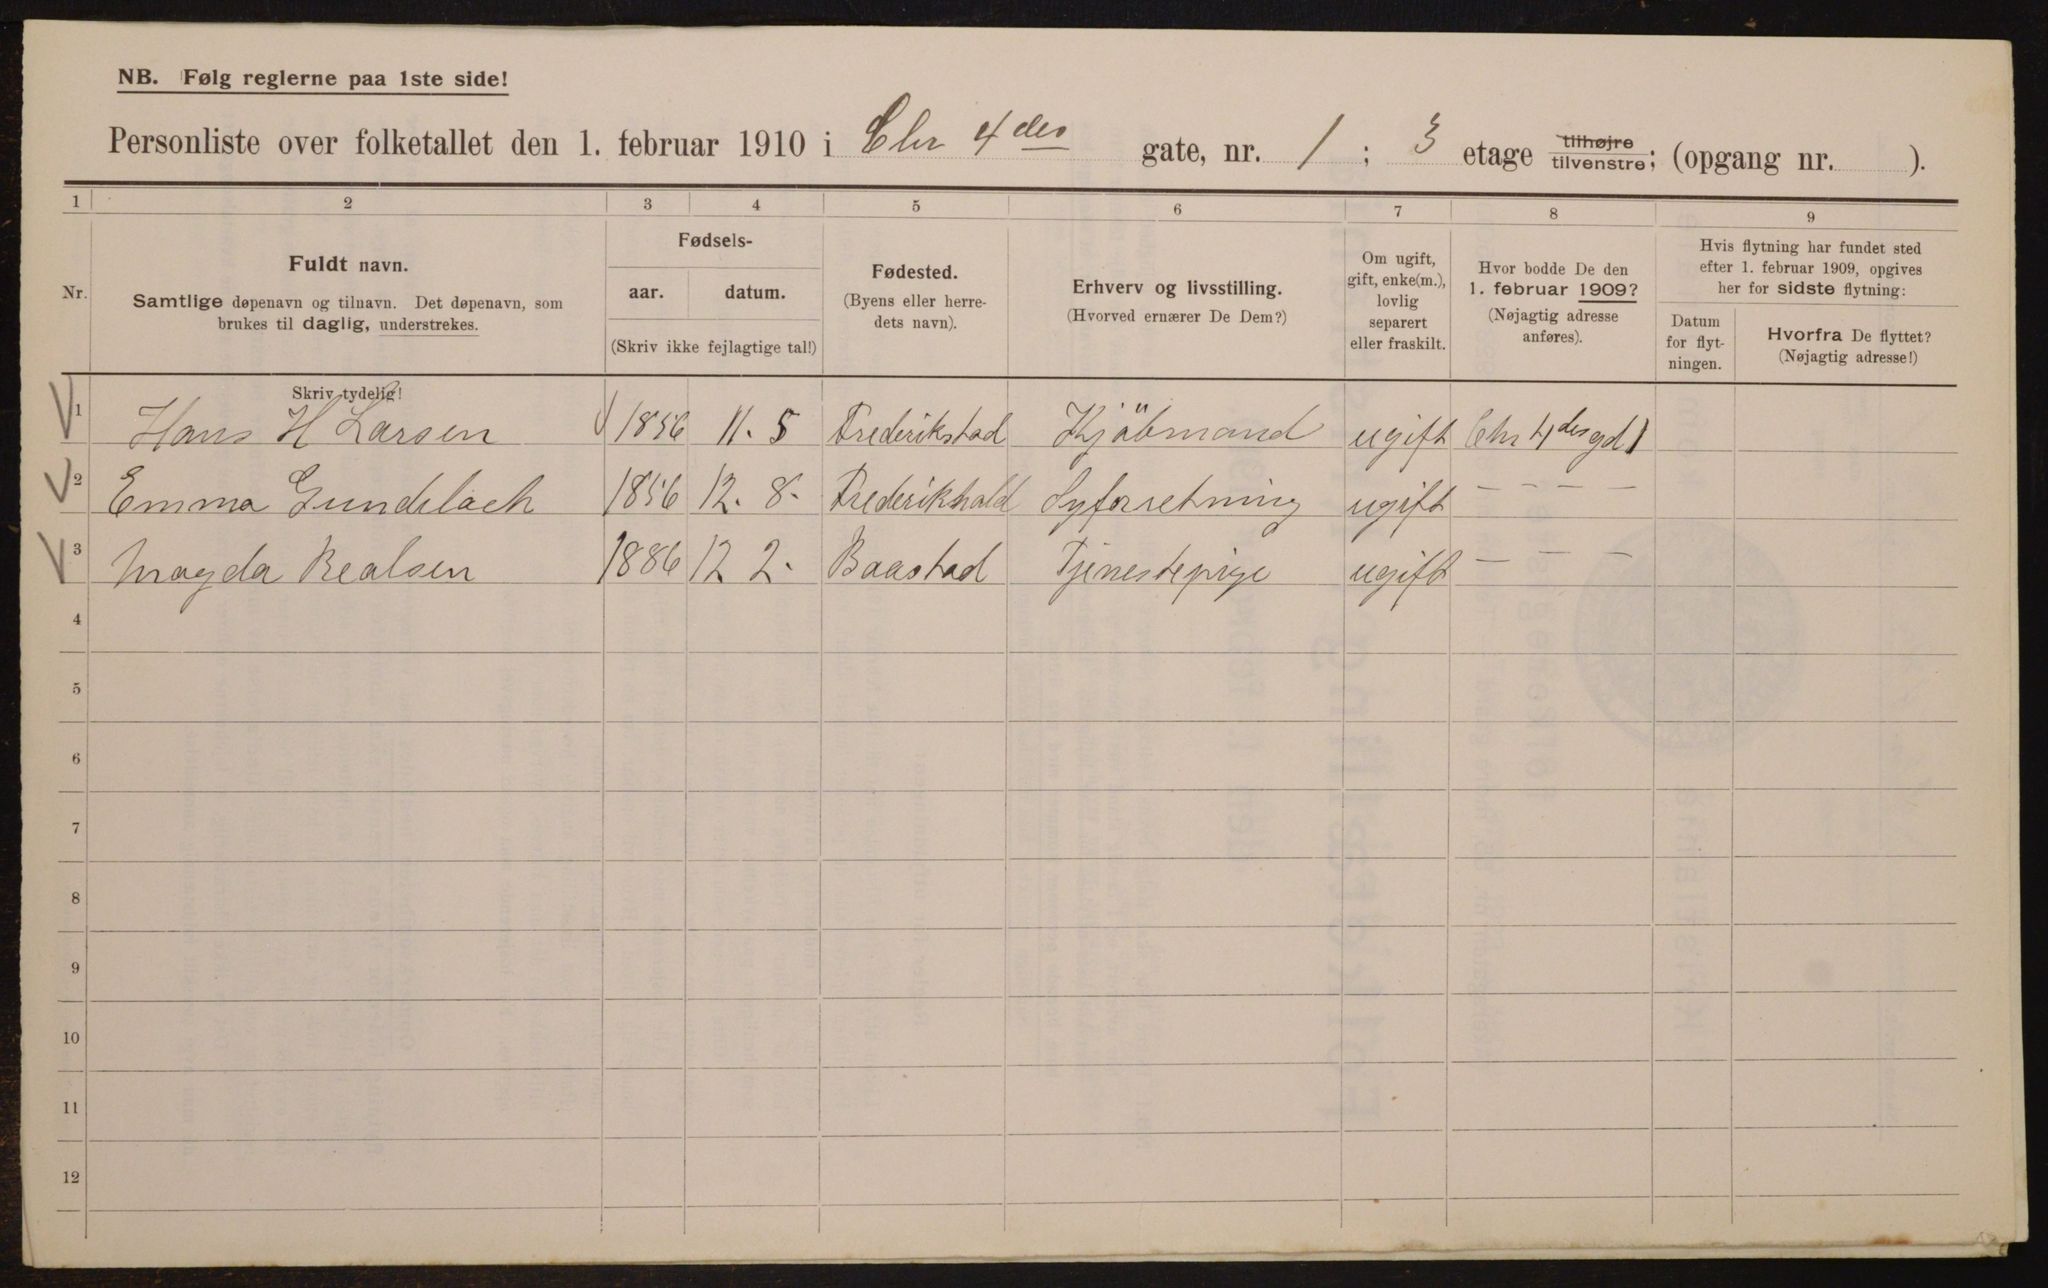 NB. Følg reglerne paa 1ste side!
Personliste over folketallet den 1. februar 1910 i Chr 4des gate, nr. 1 ; 3 etage tilhøjre tilvenstre; (opgang nr. ).
1 2 3 4 5 6 7 8 9
Nr.
Fuldt navn.
Samtlige døpenavn og tilnavn. Det døpenavn, som
brukes til daglig, understrekes.
Fødsels-
aar. datum.
(Skriv ikke fejlagtige tal!)
Fødested.
(Byens eller herre-
dets navn).
Erhverv og livsstilling.
(Hvorved ernærer De Dem?)
Om ugift,
gift, enke(m.),
lovlig
separert
eller fraskilt.
Hvor bodde De den
1. februar 1909?
(Nøjagtig adresse
anføres).
Hvis flytning har fundet sted
efter 1. februar 1909, opgives
her for sidste flytning:
Datum
for flyt-
ningen.
Hvorfra De flyttet?
(Nøjagtig adresse!)
Skriv tydelig!
1 Hans H Larsen 1856 11. 5 Frederikstad Kjöbmand ugift Chr 4des gd 1
2 Emma Gundelach 1856 12. 8. Frederikhald Syforretning ugift — — — —
3 Magda Bealsen 1886 12 2. Baastad Tjenestepige ugift — — —
4
5
6
7
8
9
10
11
12